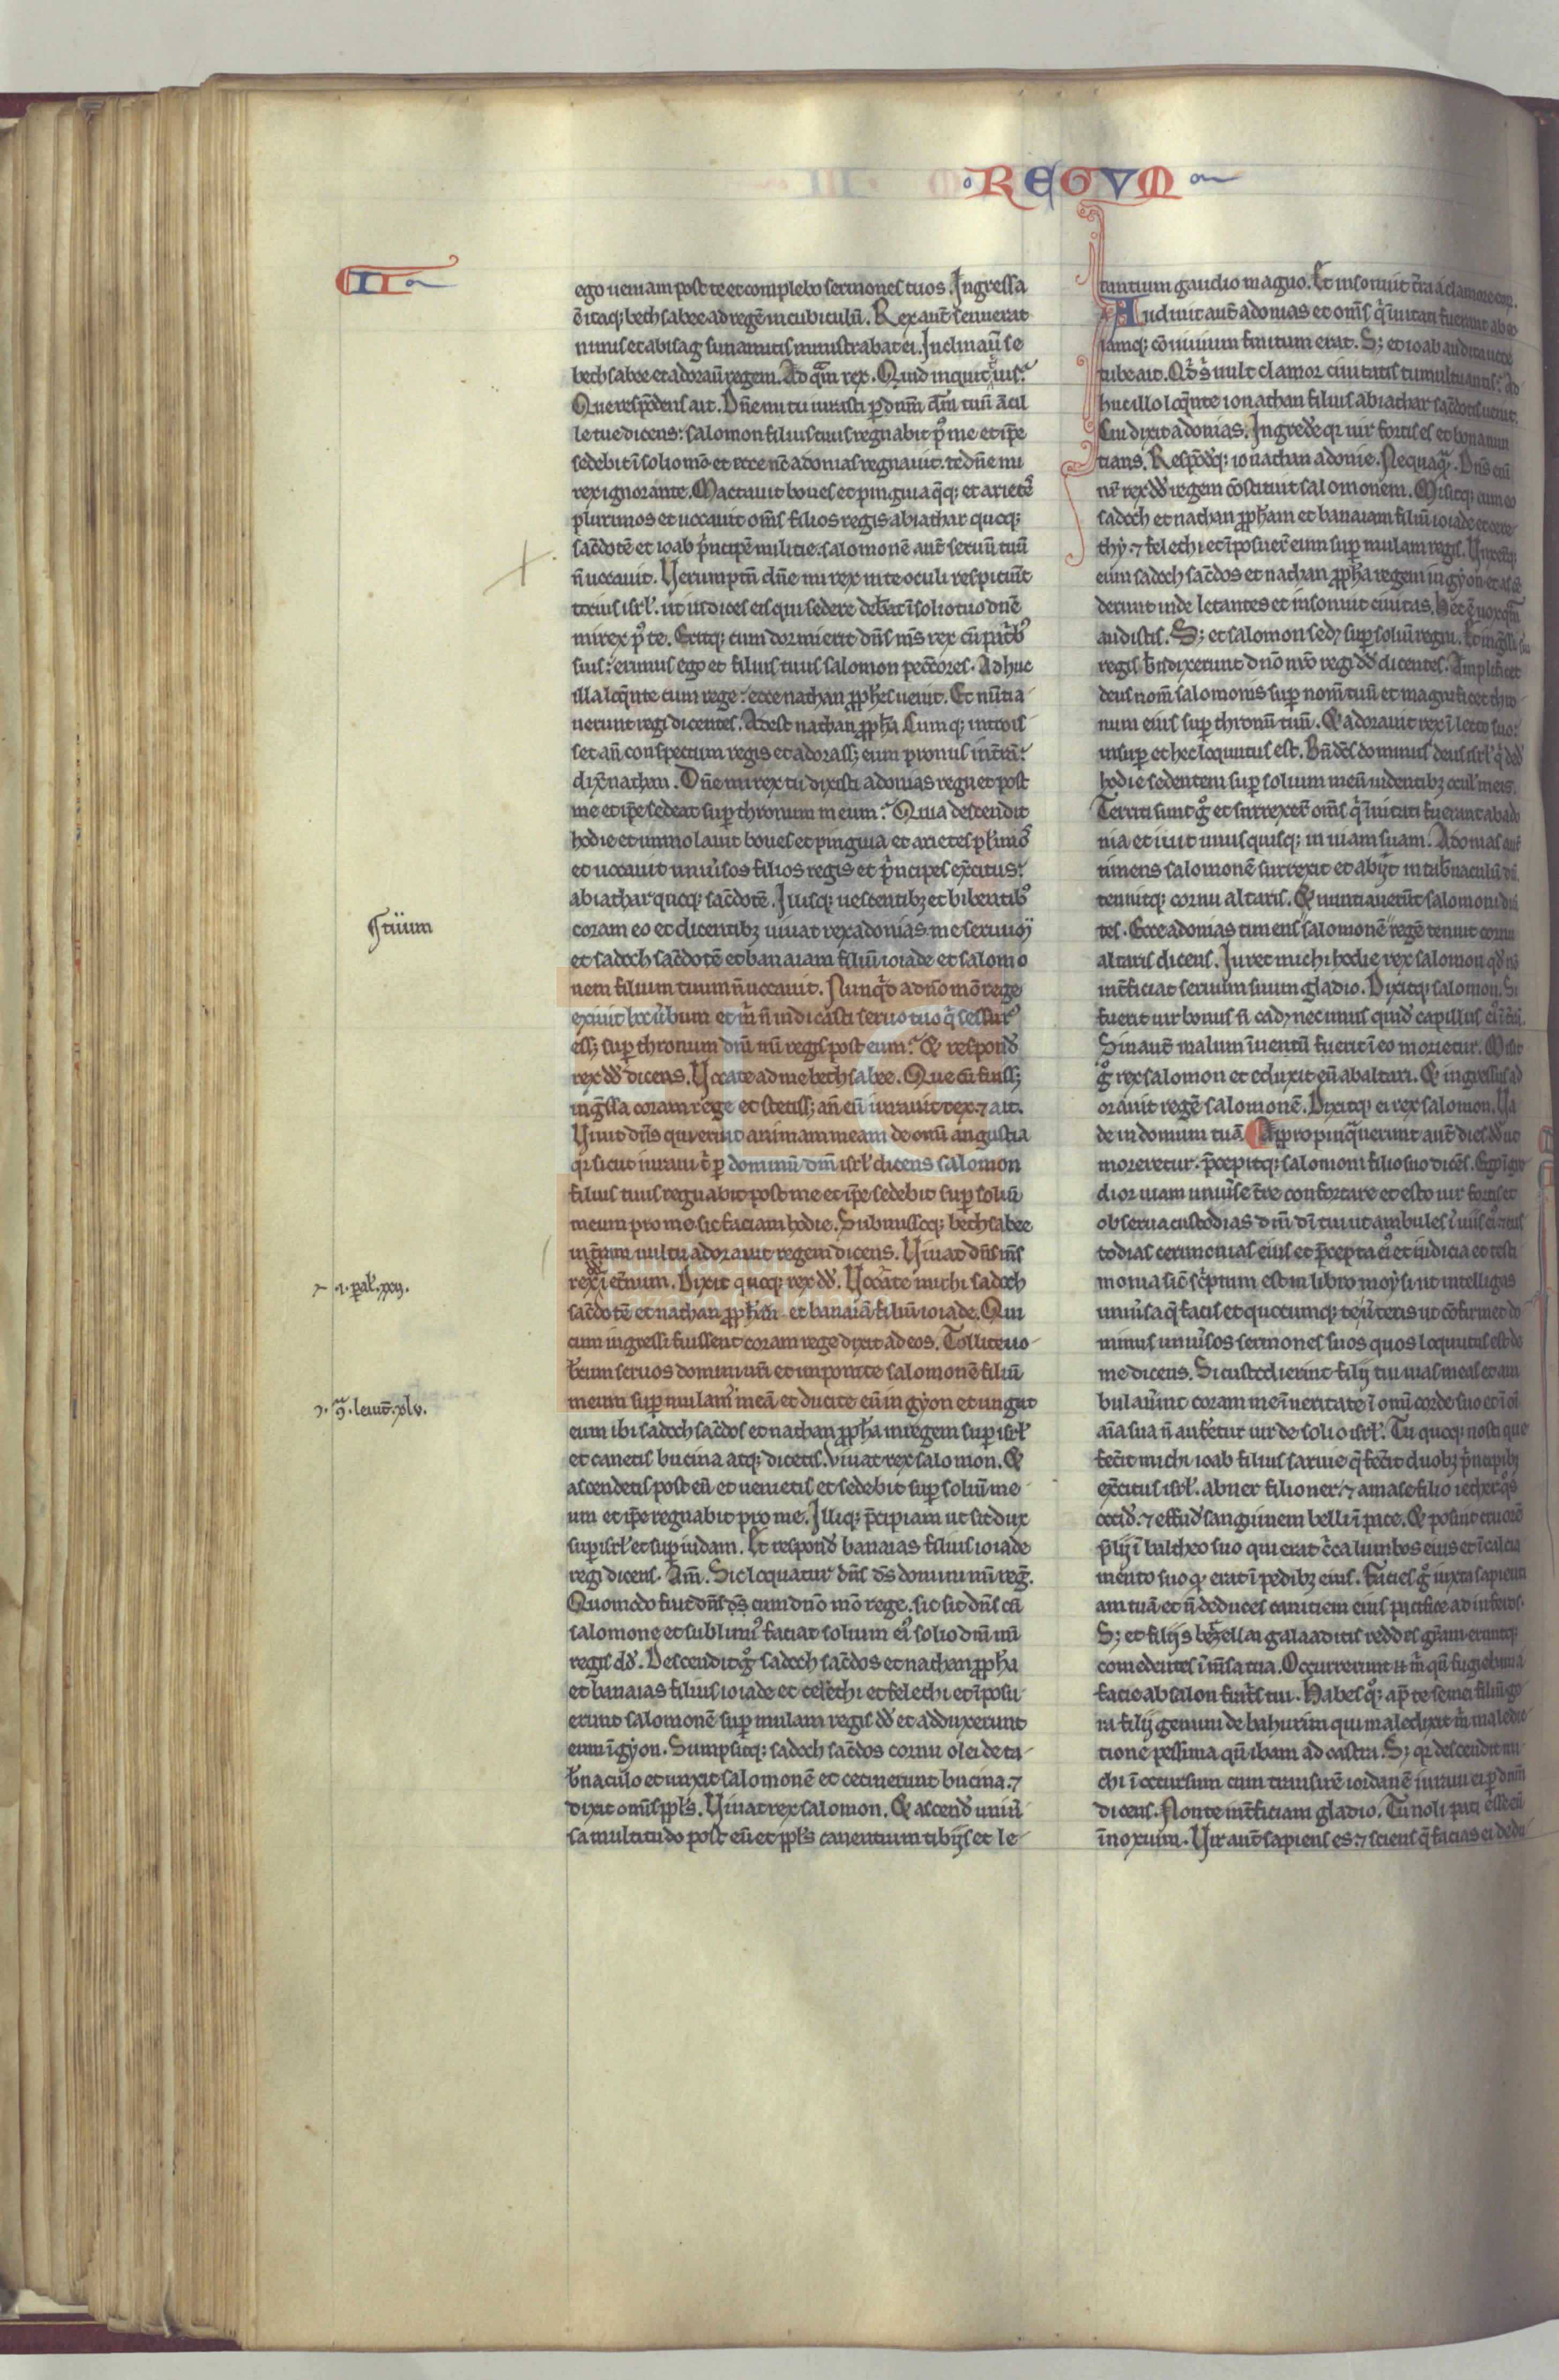 REGVM
II
ego ueniam post te et complebo sermones tuos. Ingressa
ē itaq; bethsabee ad regē in cubiculū. Rex aut̄ senuerat
nimis et abisag sunamitis ministrabat ei. Inclinauit se
bethsabee et adorauit regem. Ad quā rex. Quid inquit tibi uis?
Que respōdens ait. Dn̄e mi tu iurasti ꝑ dn̄m dm̄ tuū ancil
le tue dicens: salomon filius tuus regnabit p̄ me et ip̄e
sedebit ī solio mō et ecce nc̄ adonias regnauit. te dn̄e mi
rex ignorante. Mactauit boues et pinguia q̄q; et arietes
plurimos et uocauit om̄s filios regis abiathar quoq;
sac̄dotē et ioab p̄ncipē militie. salomonē aut̄ seruū tuū
n̄ uocauit. Uerumptn̄ dn̄e mi rex in te oculi respiciūt
totius isrl̄. ut indices eis qui sedere debeat ī solio tuo dn̄e
mi rex p̄ te. Eritq; cum dormierit dn̄s m̄s rex cū patribꝫ
suis: erimus ego et filius tuus salomon peccatores. Adhuc
illa loq̄nte cum rege: ecce nathan ꝓph̄es uenit. Et nūtia
uerunt regi dicentes. Adest nathan ꝓph̄a Cumq; introis
set an̄ conspectum regis et adorass; eum pronus in trā:
dix̄ nathan. Dn̄e mi rex tu dixisti adonias regnet post
me et ip̄e sedeat suꝑ thronum meum? Quia descendit
hodie et immolauit boues et pinguia et arietes pl̄imos
et uocauit uniuersos filios regis et p̄ncipes ex̄citus:
abiathar quoq; sac̄dotē. Illisq; uescentibꝫ et bibentibꝫ
coram eo et dicentibꝫ uiuat rex adonias. me seruū
tuum
et sadoch sac̄dotē et banaiam filiū ioiade et salomo
nem filium tuum n̄ uocauit. Nunq̄d a dn̄o mō rege
exiuit hoc ūbum et m̄ n̄ indicasti seruo tuo q̄ sessurꝰ
ess; suꝑ thronum dn̄i mī regis post eum? & respond̄
rex dd̄ dicens. Uocate ad me bethsabee. Que cū fuiss;
inḡssa coram rege et stetiss; an̄ eū iurauit rex. ⁊ ait.
Uiuit dn̄s qui eruit animam meam de omi angustia
q̄ sicut iuraui t̄ ꝑ dominū dm̄ isrl̄ dicens salomon
filius tuus regnabit post me et ip̄e sedebit suꝑ soliū
meum pro me. sic faciam hodie. Submissoq; bethsabee
in t̄ram uultu adorauit regem dicens. Uiuat dn̄s m̄s
rex dd̄ ī et̄num. Dixit quoq; rex dd̄. Uocate michi sadoch
⁊ .i. pal̄. xxij.
sac̄dotē et nathan ꝓph̄am et banaiā filiū ioiade. Qui
cum ingressi fuissent coram rege dixit ad eos. Tollite uo
bcum seruos domini ur̄i et imponite salomonē filiū
meum suꝑ mulam meā et ducite eū in gyon et ungat
leuit̄. xlv.
eum ibi sadoch sac̄dos et nathan ꝓph̄a in regem suꝑ isrl̄
et canetis bucina atq; dicetis. uiuat rex salomon. &
ascendetis post eū et uenietis et sedebit suꝑ soliū me
um et ip̄e regnabit pro me. Illiq; p̄cipiam ut sit dux
suꝑ isrl̄ et suꝑ iudam. Et respond̄ banaias filius ioiade
regi dicens. Am̄. Sic loquatur dn̄s ds̄ domini mī reḡ.
Quomodo fuit dn̄s ds̄ cum dn̄o mō rege. sic sit dn̄s cū
salomone et sublimiꝰ faciat solium eiꝰ solio dn̄i mī
regis dd̄. Descendit g̊ sadoch sac̄dos et nathan ꝓph̄a
et banaias filius ioiade et cerethi et felethi et īposu
erunt salomonē suꝑ mulam regis dd̄ et adduxerunt
eum ī gyon. Sumpsitq; sadoch sac̄dos cornu olei de ta
b̄naculo et unxit salomonē et cecinerunt bucina. ⁊
dixit omīs ppl̄s. Uiuat rex salomon. & ascend̄ uniū
sa multitudo post eū et ppl̄s canentium tibijs et le
tantium gaudio magno. Et insonuit t̄ra a clamore eoꝝ.
Audiuit aut̄ adonias et om̄s q̄ īuitati fuerant ab eo
iamq; cōuiuium finitum erat. S; et ioab audita uoce
tube ait. Qd̄ s̄ uult clamor ciuitatis tumultuantis? Ad
huc illo loq̄nte ionathan filius abiathar sac̄dotis uenit.
Cui dixit adonias. Ingred̄e q̄ uir fortis es et bona nun
tians. Respōd̄q; ionathan adonie. Nequaq̄. Dn̄s eni
nr̄ rex dd̄ regem cōstituit salomonem. Misitq; cum eo
sadoch et nathan ꝓph̄am et banaiam filiū ioiade et cere
thy. ⁊ felethi et īposuer̄ eum suꝑ mulam regis. Unxerūtq;
eum sadoch sac̄dos et nathan ꝓph̄a regem in gyon et asc̄
derunt inde letantes et insonuit ciuitas. Hec ē uox quā
audistis. S; et salomon sed; suꝑ soliū regni. Et inḡssi sui
regis bn̄dixerunt dn̄o nr̄o regi dd̄ dicentes. Amplificet
deus nom̄ salomonis suꝑ nom̄ tuū et magnificet thro
num eius suꝑ thronū tuū. & adorauit rex ī lecto suo:
insuꝑ et hec loquutus est. Bn̄dc̄s dominus deus isrl̄ q̄ ded̄
hodie sedentem suꝑ solium meū uidentibꝫ ocul̄ meis.
Territi sunt g̊ et surrexer̄ om̄s q̄ īuitati fuerant ab ado
nia et iuit unusquisq; in uiam suam. Adonias aut̄
timens salomonē surrexit et abijt in tab̄naculū dn̄i
tenuitq; cornu altaris. & nuntiauerūt salomoni dicē
tes. Ecce adonias timens salomonē regē tenuit cornu
altaris dicens. Iuret michi hodie rex salomon qd̄ n̄
int̄ficiat seruum suum gladio. Dixitq; salomon. Si
fuerit uir bonus n̄ cad; nec unus quid̄ capillus eiꝰ ī t̄rā.
Sin aut̄ malum īuentū fuerit ī eo morietur. Misit
g̊ rex salomon et eduxit eū ab altari. & ingressus ad
orauit regē salomonē. Dixitq; ei rex salomon. Ua
de in domum tuā Appropinq̄uerunt aut̄ dies dd̄ ut
moreretur. p̄cepitq; salomoni filio suo dicēs. Ego īgre
dior uiam uniūse t̄re confortare et esto uir fortis et
obserua custodias dn̄i dī tui ut ambules ī uiis eiꝰ et cus
todias cerimonias eius et p̄cepta eiꝰ et iudicia et testi
monia sic̄ sc̄ptum est in libro moysi ut intelligas
uniūsa q̄ facis et quocumq; te ūteris ut cōfirmet do
minus uniūsos sermones suos quos loquutus est de
me dicens. Si custodierint filij tui uias meas et am
bulaūint coram me ī ueritate ī omi corde suo et ī oī
aīa sua n̄ auferetur uir de solio isrl̄. Tu quoq; nosti que
fec̄it michi ioab filius saruie q̄ fec̄it duobꝫ p̄ncipibꝫ
ex̄citus isrl̄. abner filio ner. ⁊ amase filio iether q̊s
occid̄. ⁊ effud̄ sanguinem belli ī pace. & posuit cruorē
p̄lij ī baltheo suo qui erat c̄ca lumbos eius et ī calcia
mento suo q̄ erat ī pedibꝫ eius. Facies g̊ iuxta sapienti
am tuā et n̄ deduces canitiem eius pacifice ad inferos.
S; et filijs berzellai galaaditis reddes gr̄am eruntq;
comedentes ī mēsa tua. Occurrerunt n̄ m̄ qn̄ fugiebam a
facie absalon fr̄is tui. Habes q̊q; ap̄ te semei filiū ge
ra filij gemini de bahurim qui maledixit m̄ maledic
tione pessima qn̄ ibam ad castra. S; q̄ descendit mi
chi ī occursum cum transirē iordanē iuraui ei ꝑ dn̄m
dicens. Non te int̄ficiam gladio. Tu noli pati eē eū
īnoxium. Uir aut̄ sapiens es. ⁊ sciens q̄ facias ei dedu